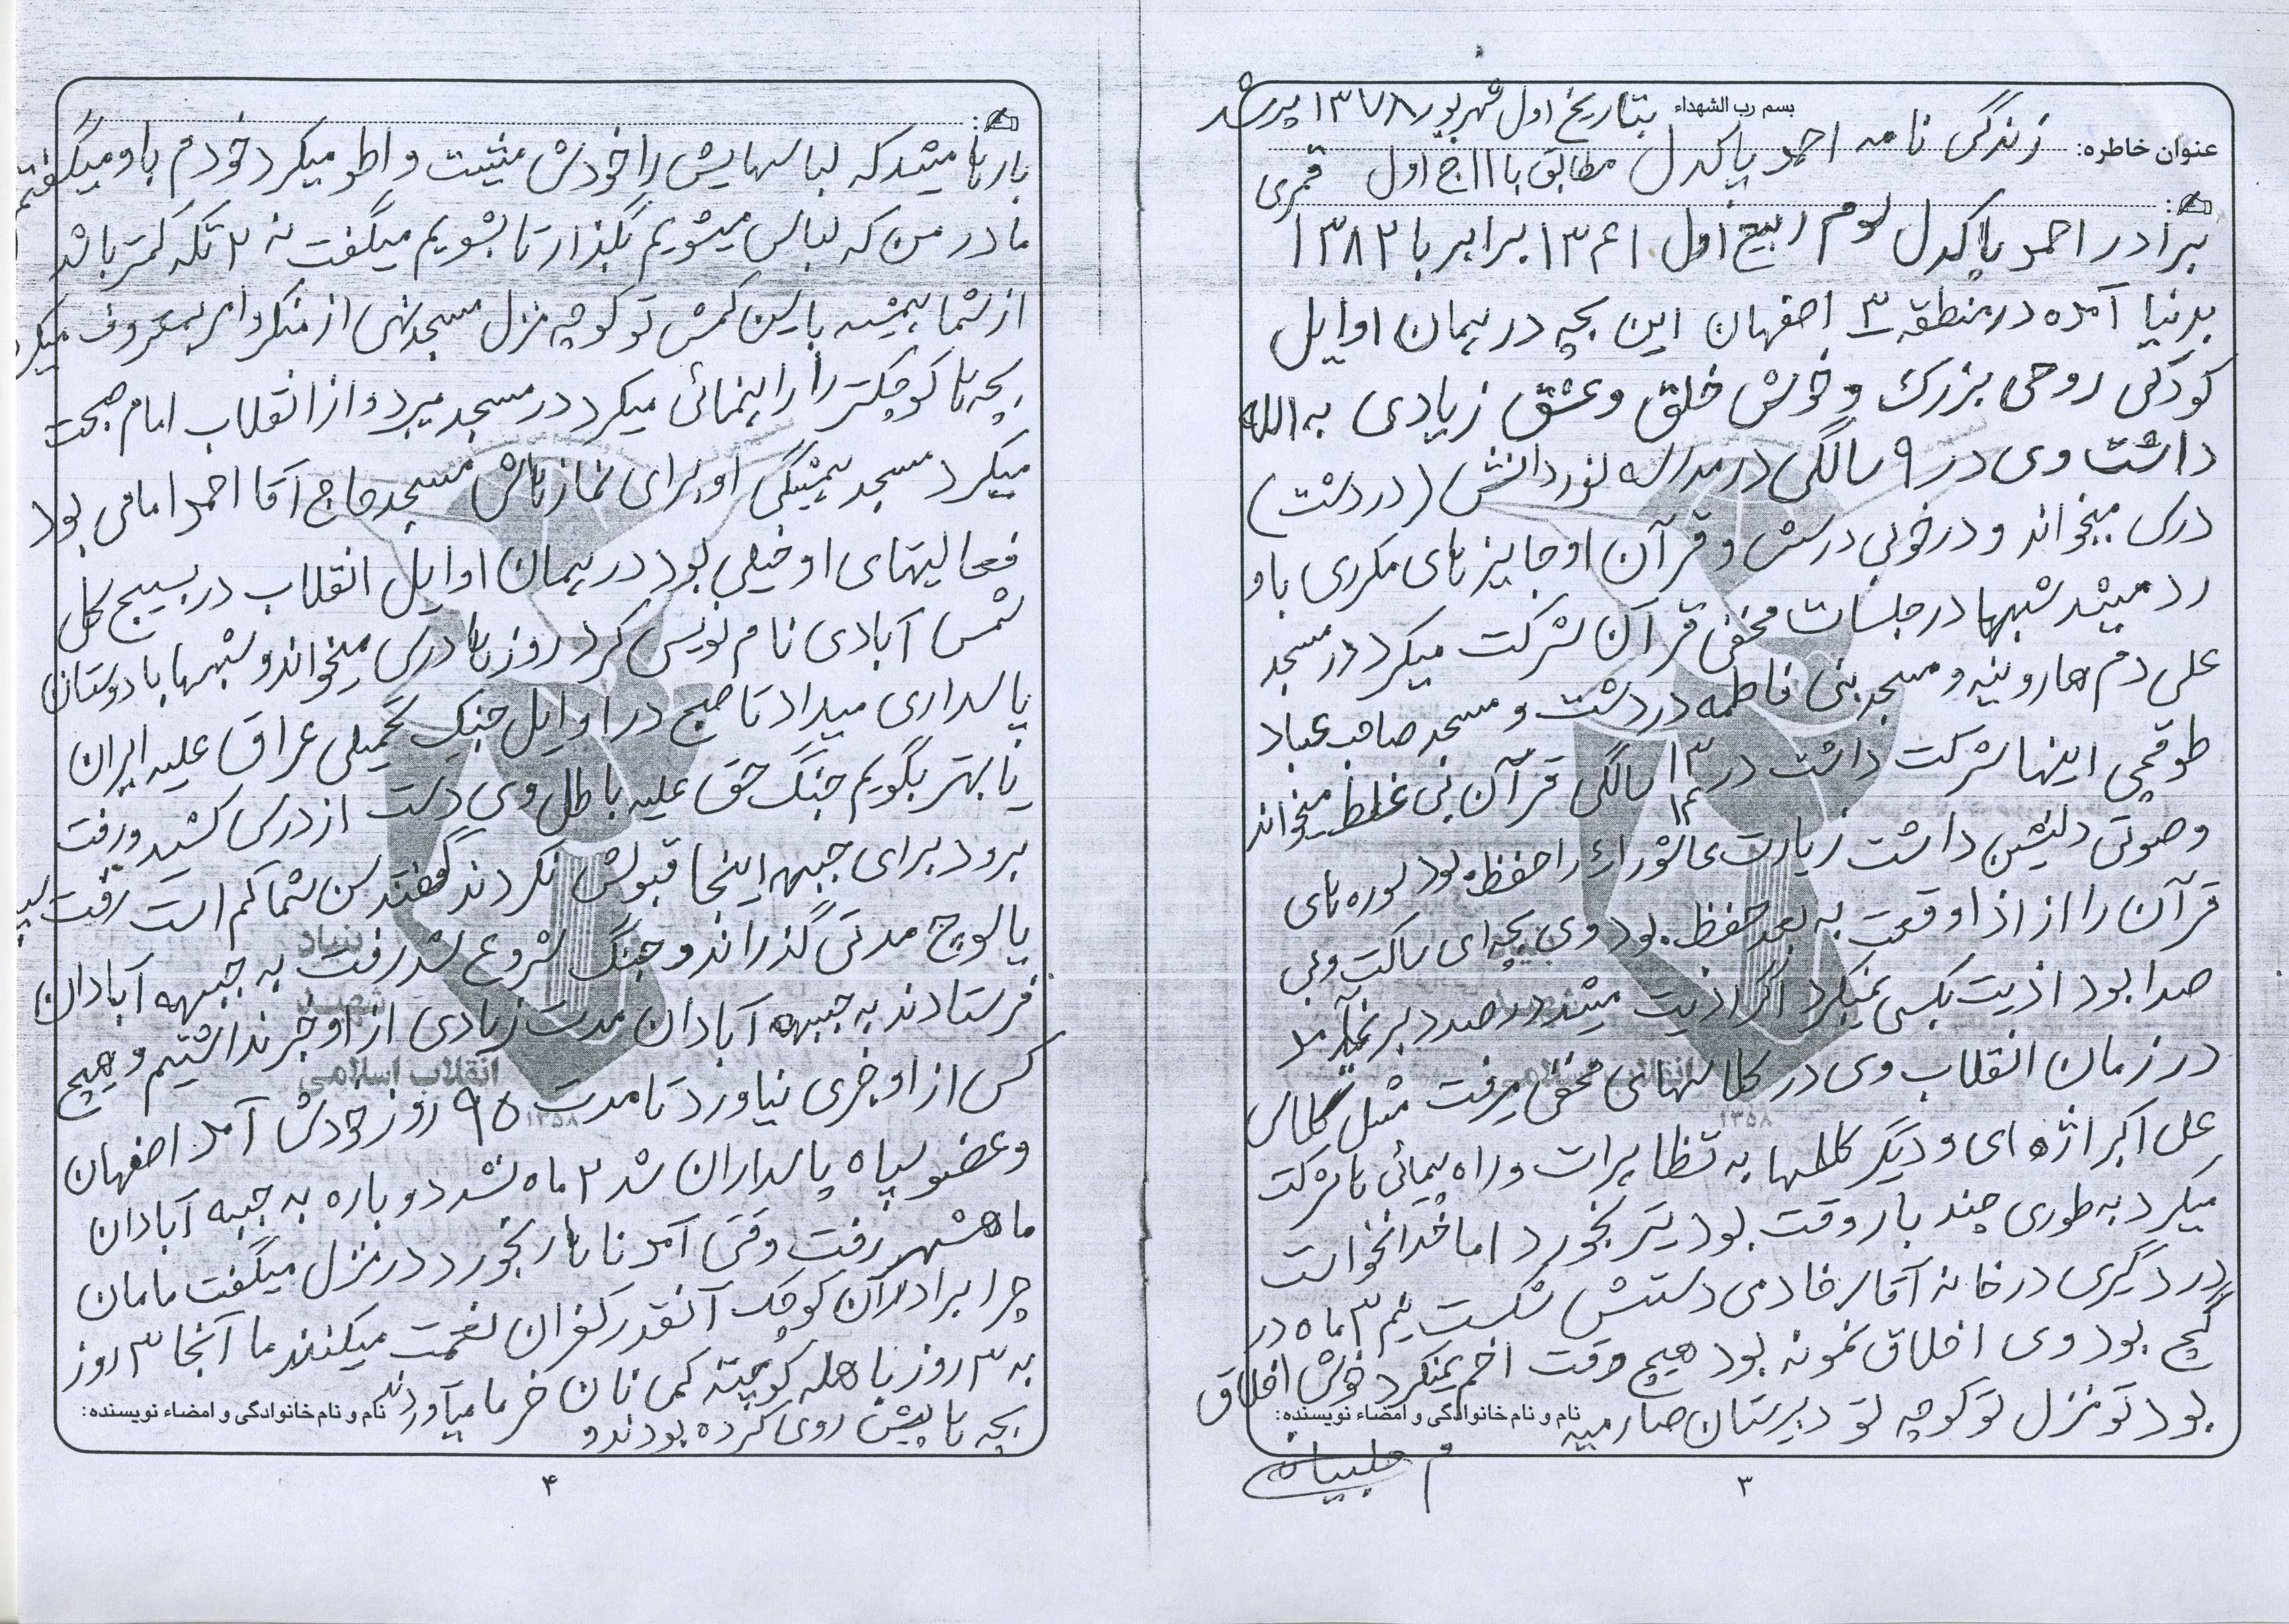 بسم رب الشهداء بتاریخ اول شهریور ۱۳۷۸ پر شد
عنوان خاطره: زندگی نامه احمد پاکدل مطابق با ۱۱ ج اول قمری
برادر احمد پاکدل سوم ربیع اول ۱۳۴۱ برابر با ۱۳۸۲
بدنیا آمده در منطقه ۳ اصفهان این بچه در همان اوایل
کودکی روحی بزرگ و خوش خلق و عشق زیادی به الله
داشت وی در ۹ سالگی در مدرسه نور دانش (دردشت)
درس میخواند و در خوبی درسش و قرآن او جایزه های مکرری باو
رد میشد شبها در جلسات مخفی قرآن شرکت میکرد در مسجد
علی دم هارونیه و مسجد بنی فاطمه دردشت و مسجد صاحب عباد
طوقچی اینها شرکت داشت در ۱۳ ۱۴ سالگی قرآن بی غلط میخواند
و صوتی دلنشین داشت زیارت عاشوراء را حفظ بود سوره های
قرآن را از اذا وقعت به بعد حفظ بود وی بچه ای ساکت و بی
صدا بود اذیت بکسی نمیکرد اگر اذیت میشد در صدد بر نمیآمد
در زمان انقلاب وی در کلاسهای مخفی میرفت مثل کلاس
علی اکبر اژه ای و دیگر کلاسها به تظاهرات و راه پیمائی ها شرکت
میکرد به طوری چند بار وقت بود تیر بخورد اما خدا نخواست
در درگیری در خانه آقای خادمی دستش شکست نیم ۳ ماه در
گچ بود وی اخلاق نمونه بود هیچ وقت اخم نمیکرد خوش اخلاق
بود تو منزل تو کوچه تو دبیرستان صارمیه
نام و نام خانوادگی و امضاء نویسنده:
م حلبیان
۳
بارها میشد که لباسهایش را خودش میشست و اطو میکرد خودم باو میگفتم
مادر من که لباس میشویم بگذار تا بشویم میگفت نه ۲ تکه کمتر باشد
از شما همیشه با سن کمش تو کوچه منزل مسجد نهی از منکر و امر بمعروف میکرد
بچه های کوچکتر را راهنمائی میکرد در مسجد میبرد و از انقلاب امام صحبت
میکرد مسجد همیشگی او برای نمازهاش مسجد حاج آقا احمد امامی بود
فعالیتهای او خیلی بود در همان اوایل انقلاب در بسیج کل
شمس آبادی نام نویس کرد روزها درس میخواند و شبها با دوستان
پاسداری میداد تا صبح در اوایل جنگ تحمیلی عراق علیه ایران
یا بهتر بگویم جنگ حق علیه باطل وی دست از درس کشید و رفت
برود برای جبهه اینجا قبولش نکردند گفتند سن شما کم است رفت
یاسوج مدتی گذراند و جنگ شروع شد رفت به جبهه آبادان
فرستادند به جبهه آبادان مدت زیادی از او خبر نداشتیم و هیچ
کس از او خبری نیاورد تا مدت ۹۵ روز خودش آمد اصفهان
و عضو سپاه پاسداران شد ۲ ماه نشد دوباره به جبهه آبادان
ماهشهر رفت وقتی آمد ناهار بخورد در منزل میگفت مامان
چرا برادران کوچک آنقدر کفران نعمت میکنند ما آنجا ۳ روز
به ۳ روز با هله کوپتر کمی نان خرما میآورند
بچه ها پیش روی کرده بودند و
نام و نام خانوادگی و امضاء نویسنده:
۴
بنیاد
شهید
انقلاب اسلامی
۱۳۵۸